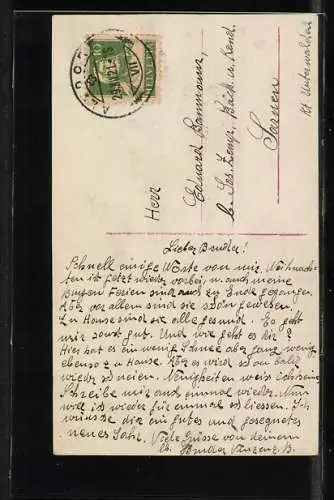 Herr
Eduard
b. Jos. Zemp, Bäck. u. Kond.
Sarnen
Kt. Unterwalden
HELVETIA
10
Lieber Bruder!
Schnell einige Worte von mir. Weihnach-
ten ist jetzt wieder vorbei, u. auch meine
Ferien sind auch zu Ende gegangen.
Aber vor allem sind sie schön gewesen.
Zu Hause sind sie alle gesund. Es geht
mir sonst gut. Und wie geht es dir?
Hier hat es ein wenig Schnee aber ganz wenig
ebenso zu Hause. Aber es wird schon bald
wieder schneien. Neuigkeiten weis ich keine
Schreibe mir auch einmal wieder. Nun
will ich wieder für einmal schliessen. Ich
wünsche dir ein gutes und gesegnetes
neues Jahr. Viele Grüsse von deinem
lb. Bruder Vinzenz B.